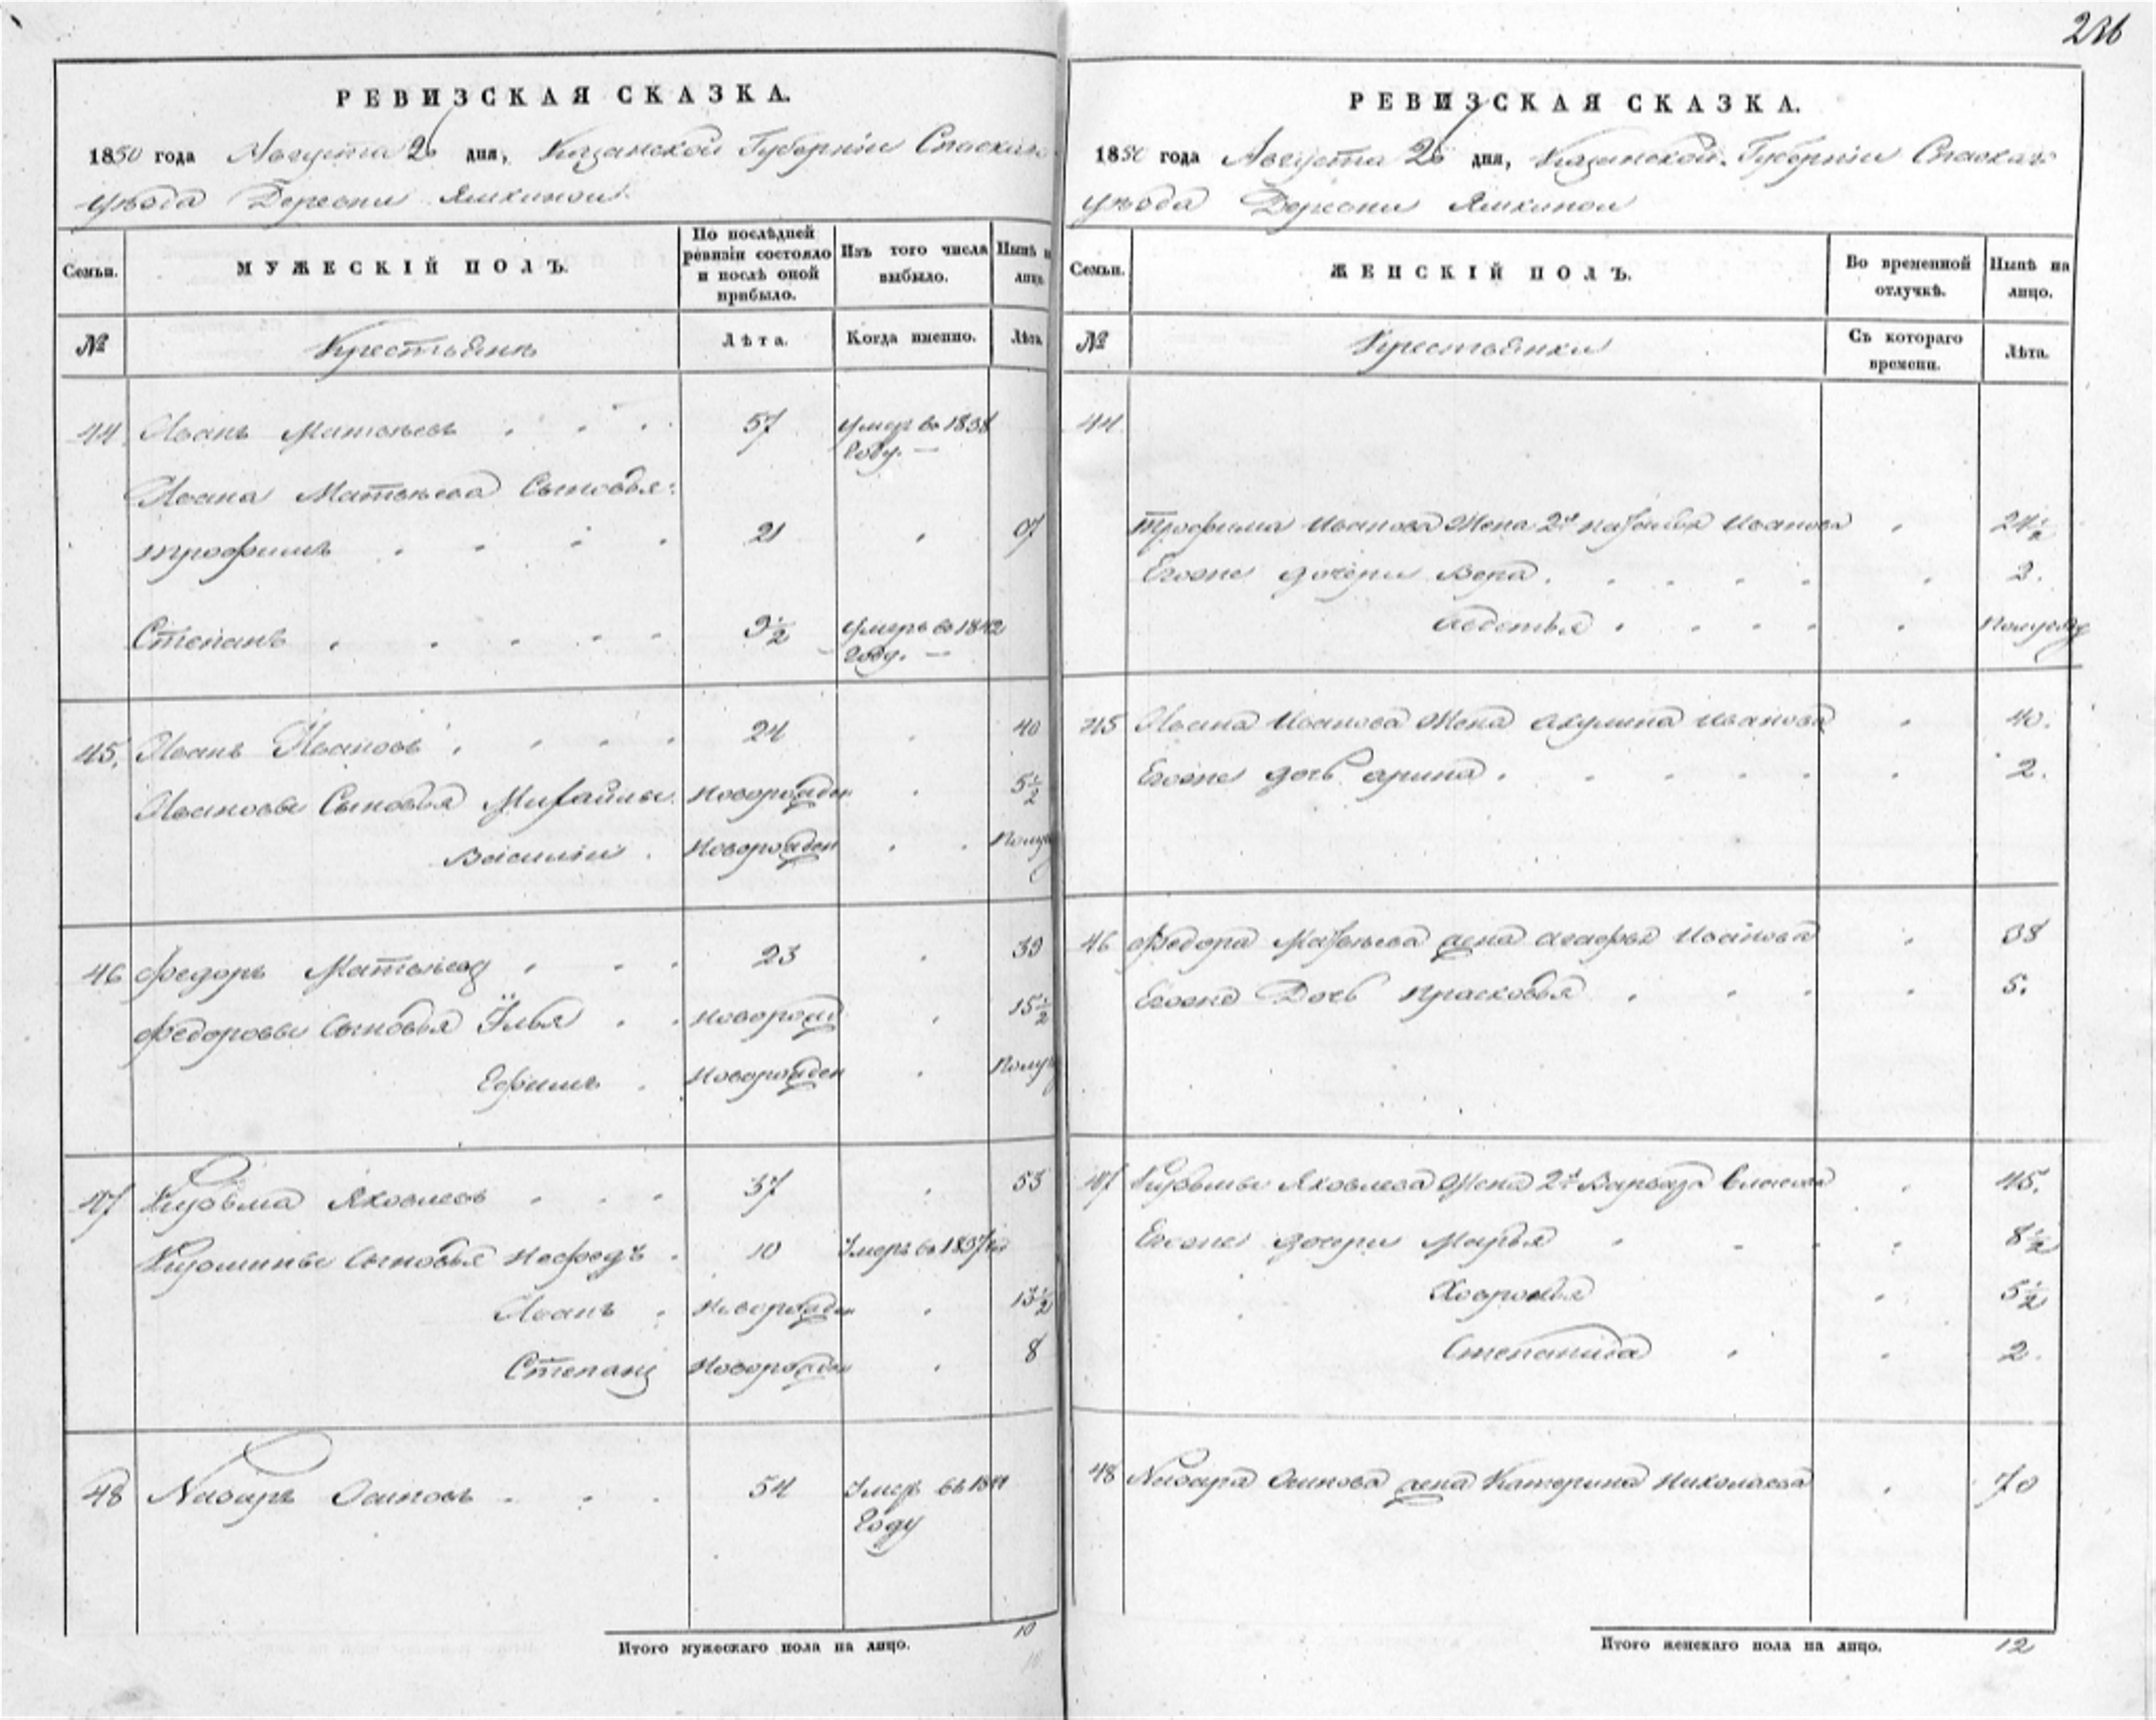 236
РЕВИЗСКАЯ СКАЗКА.
1850 года Августа 26 дня, Казанской Губерніи Спаскаго
уѣзда Деревни Ямкиной
Семьи.
МУЖЕСКІЙ ПОЛЪ.
По послѣдней ревизіи состояло и послѣ оной прибыло.
Изъ того числа выбыло.
Нынѣ на лицо.
№
Крестьянъ
Лѣта.
Когда именно.
Лѣта.
44 Иванъ Матвѣевъ 57 умеръ въ 1838
Году.
Ивана Матвѣева Сыновья:
трофимъ 21 37
Степанъ 9½ умеръ въ 1842
Году.
45. Иванъ Ивановъ 24 40
Ивановы Сыновья Михайлы Новорожден 5½
Василіи Новорожден Полуго
46 Федоръ Матвѣевъ 23 39
Федоровы Сыновья Илья Новорожд 15½
Ефимъ Новорожден Полуго
47 Кузьма Яковлевъ 37 53
Кузмины Сыновья Нефедъ 10 Умеръ въ 1837
Иванъ Новорожден 13½
Степанъ Новорожден 8
48 Назаръ Осиповъ 54 Умеръ въ 1844
Году
Итого мужескаго пола на лицо. 10
РЕВИЗСКАЯ СКАЗКА.
1850 года Августа 26 дня, Казанской Губерніи Спаскаго
уѣзда Деревни Ямкиной
Семьи.
ЖЕНСКІЙ ПОЛЪ.
Во временной отлучкѣ.
Нынѣ на лицо.
№
Крестьянки
Съ котораго времени.
Лѣта.
44
Трофима Иванова Жена 2я Наталья Иванова 24½
Егоже дочери Вера 2.
Авдотья Полугод
45 Ивана Иванова Жена Акулина Иванова 40.
Егоже дочь арина 2.
46 Федора Матвѣева жена агафья Иванова 38
Егоже Дочь Прасковья 5.
47 Кузьмы Яковлева Жена 2я Варвара Власова 45.
Егоже дочери Марья 8½
Хавронья 5½
Степанида 2.
48 Назара Осипова жена Катерина Николаева 70
Итого женскаго пола на лицо. 12